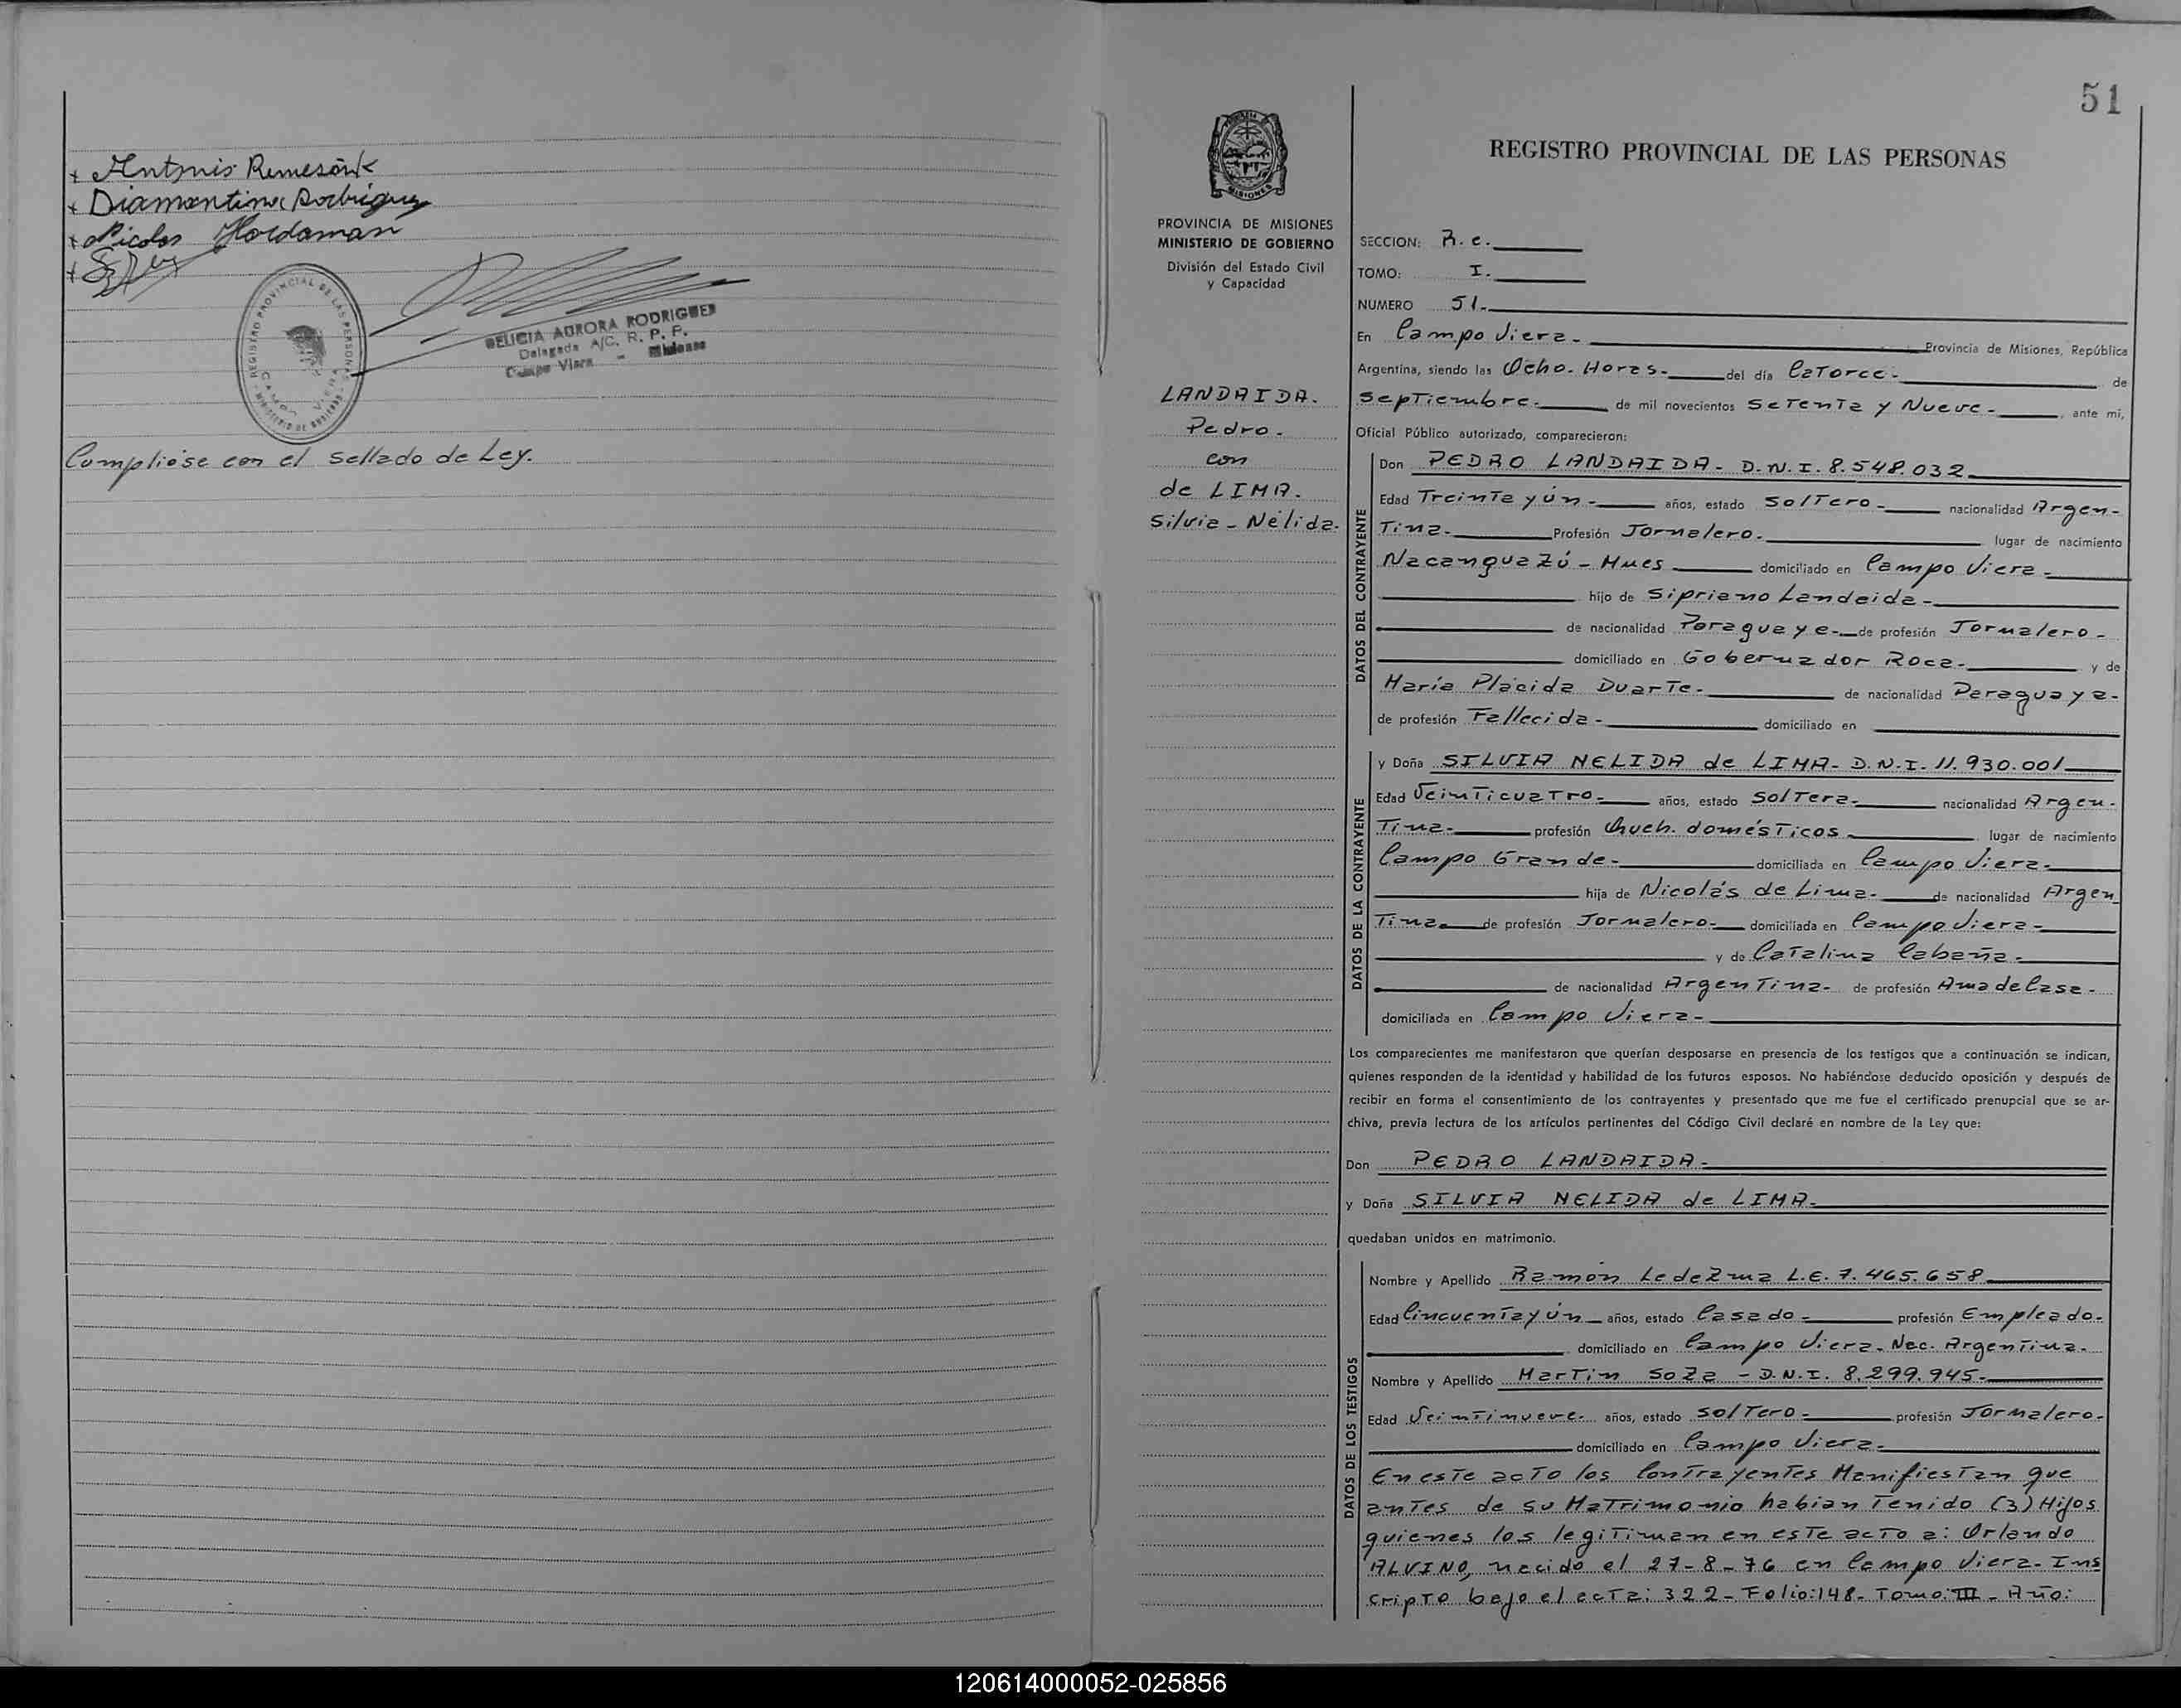 + Antonio
+ Diamantina Rodriguez
+ Nicolas
REGISTRO PROVINCIAL DE LAS PERSONAS
MINISTERIO DE GOBIERNO
CAMPO VIERA
DELICIA AURORA RODRIGUEZ
Delegada A/C. R. P. P.
Campo Viera - Misiones
Cumplióse con el sellado de Ley.
51
MISIONES
PROVINCIA DE MISIONES
MINISTERIO DE GOBIERNO
División del Estado Civil
y Capacidad
LANDAIDA.
Pedro.
con
de LIMA.
Silvia - Nélida.
REGISTRO PROVINCIAL DE LAS PERSONAS
SECCION: R. e.
TOMO: I.
NUMERO 51.-
En Campo Viera.- Provincia de Misiones, República
Argentina, siendo las Ocho. Horas.- del día Catorce.- de
Septiembre.- de mil novecientos Setenta y Nueve.- , ante mi,
Oficial Público autorizado, comparecieron:
DATOS DEL CONTRAYENTE
Don PEDRO LANDAIDA - D.N.I. 8.548.032
Edad Treinta y ún.- años, estado Soltero.- nacionalidad Argen-
tina.- Profesión Jornalero.- lugar de nacimiento
Ñacanguazú - Mnes domiciliado en Campo Viera.-
hijo de Sipriano Landaida.-
de nacionalidad Paraguaya.- de profesión Jornalero.-
domiciliado en Gobernador Roca.- y de
María Plácida Duarte.- de nacionalidad Paraguaya.-
de profesión Fallecida.- domiciliado en
DATOS DE LA CONTRAYENTE
y Doña SILVIA NELIDA de LIMA - D.N.I. 11.930.001
Edad Veinticuatro.- años, estado Soltera.- nacionalidad Argen-
tina.- profesión Queh. domésticos.- lugar de nacimiento
Campo Grande.- domiciliada en Campo Viera.-
hija de Nicolás de Lima.- de nacionalidad Argen
tina.- de profesión Jornalero.- domiciliada en Campo Viera.-
y de Catalina Cabaña.-
de nacionalidad Argentina.- de profesión Ama de Casa.-
domiciliada en Campo Viera.-
Los comparecientes me manifestaron que querían desposarse en presencia de los testigos que a continuación se indican,
quienes responden de la identidad y habilidad de los futuros esposos. No habiéndose deducido oposición y después de
recibir en forma el consentimiento de los contrayentes y presentado que me fue el certificado prenupcial que se ar-
chiva, previa lectura de los artículos pertinentes del Código Civil declaré en nombre de la Ley que:
Don PEDRO LANDAIDA.-
y Doña SILVIA NELIDA de LIMA.-
quedaban unidos en matrimonio.
DATOS DE LOS TESTIGOS
Nombre y Apellido Ramón Ledezma L.E. 7.465.658
Edad Cincuentay ún años, estado Casado.- profesión Empleado.-
domiciliado en Campo Viera. Nac. Argentina.-
Nombre y Apellido Martin Soza - D.N.I. 8.299.945.-
Edad Veintinueve.- años, estado Soltero.- profesión Jornalero.-
domiciliado en Campo Viera.-
En este acto los Contrayentes Manifiestan que
antes de su Matrimonio habian Tenido (3) Hijos
quienes los legitiman en este acto a: Orlando
ALVINO, nacido el 27-8-76 en Campo Viera - Ins
cripto bajo el acta: 322 - Folio: 148 - Tomo: III - Año:
120614000052-025856